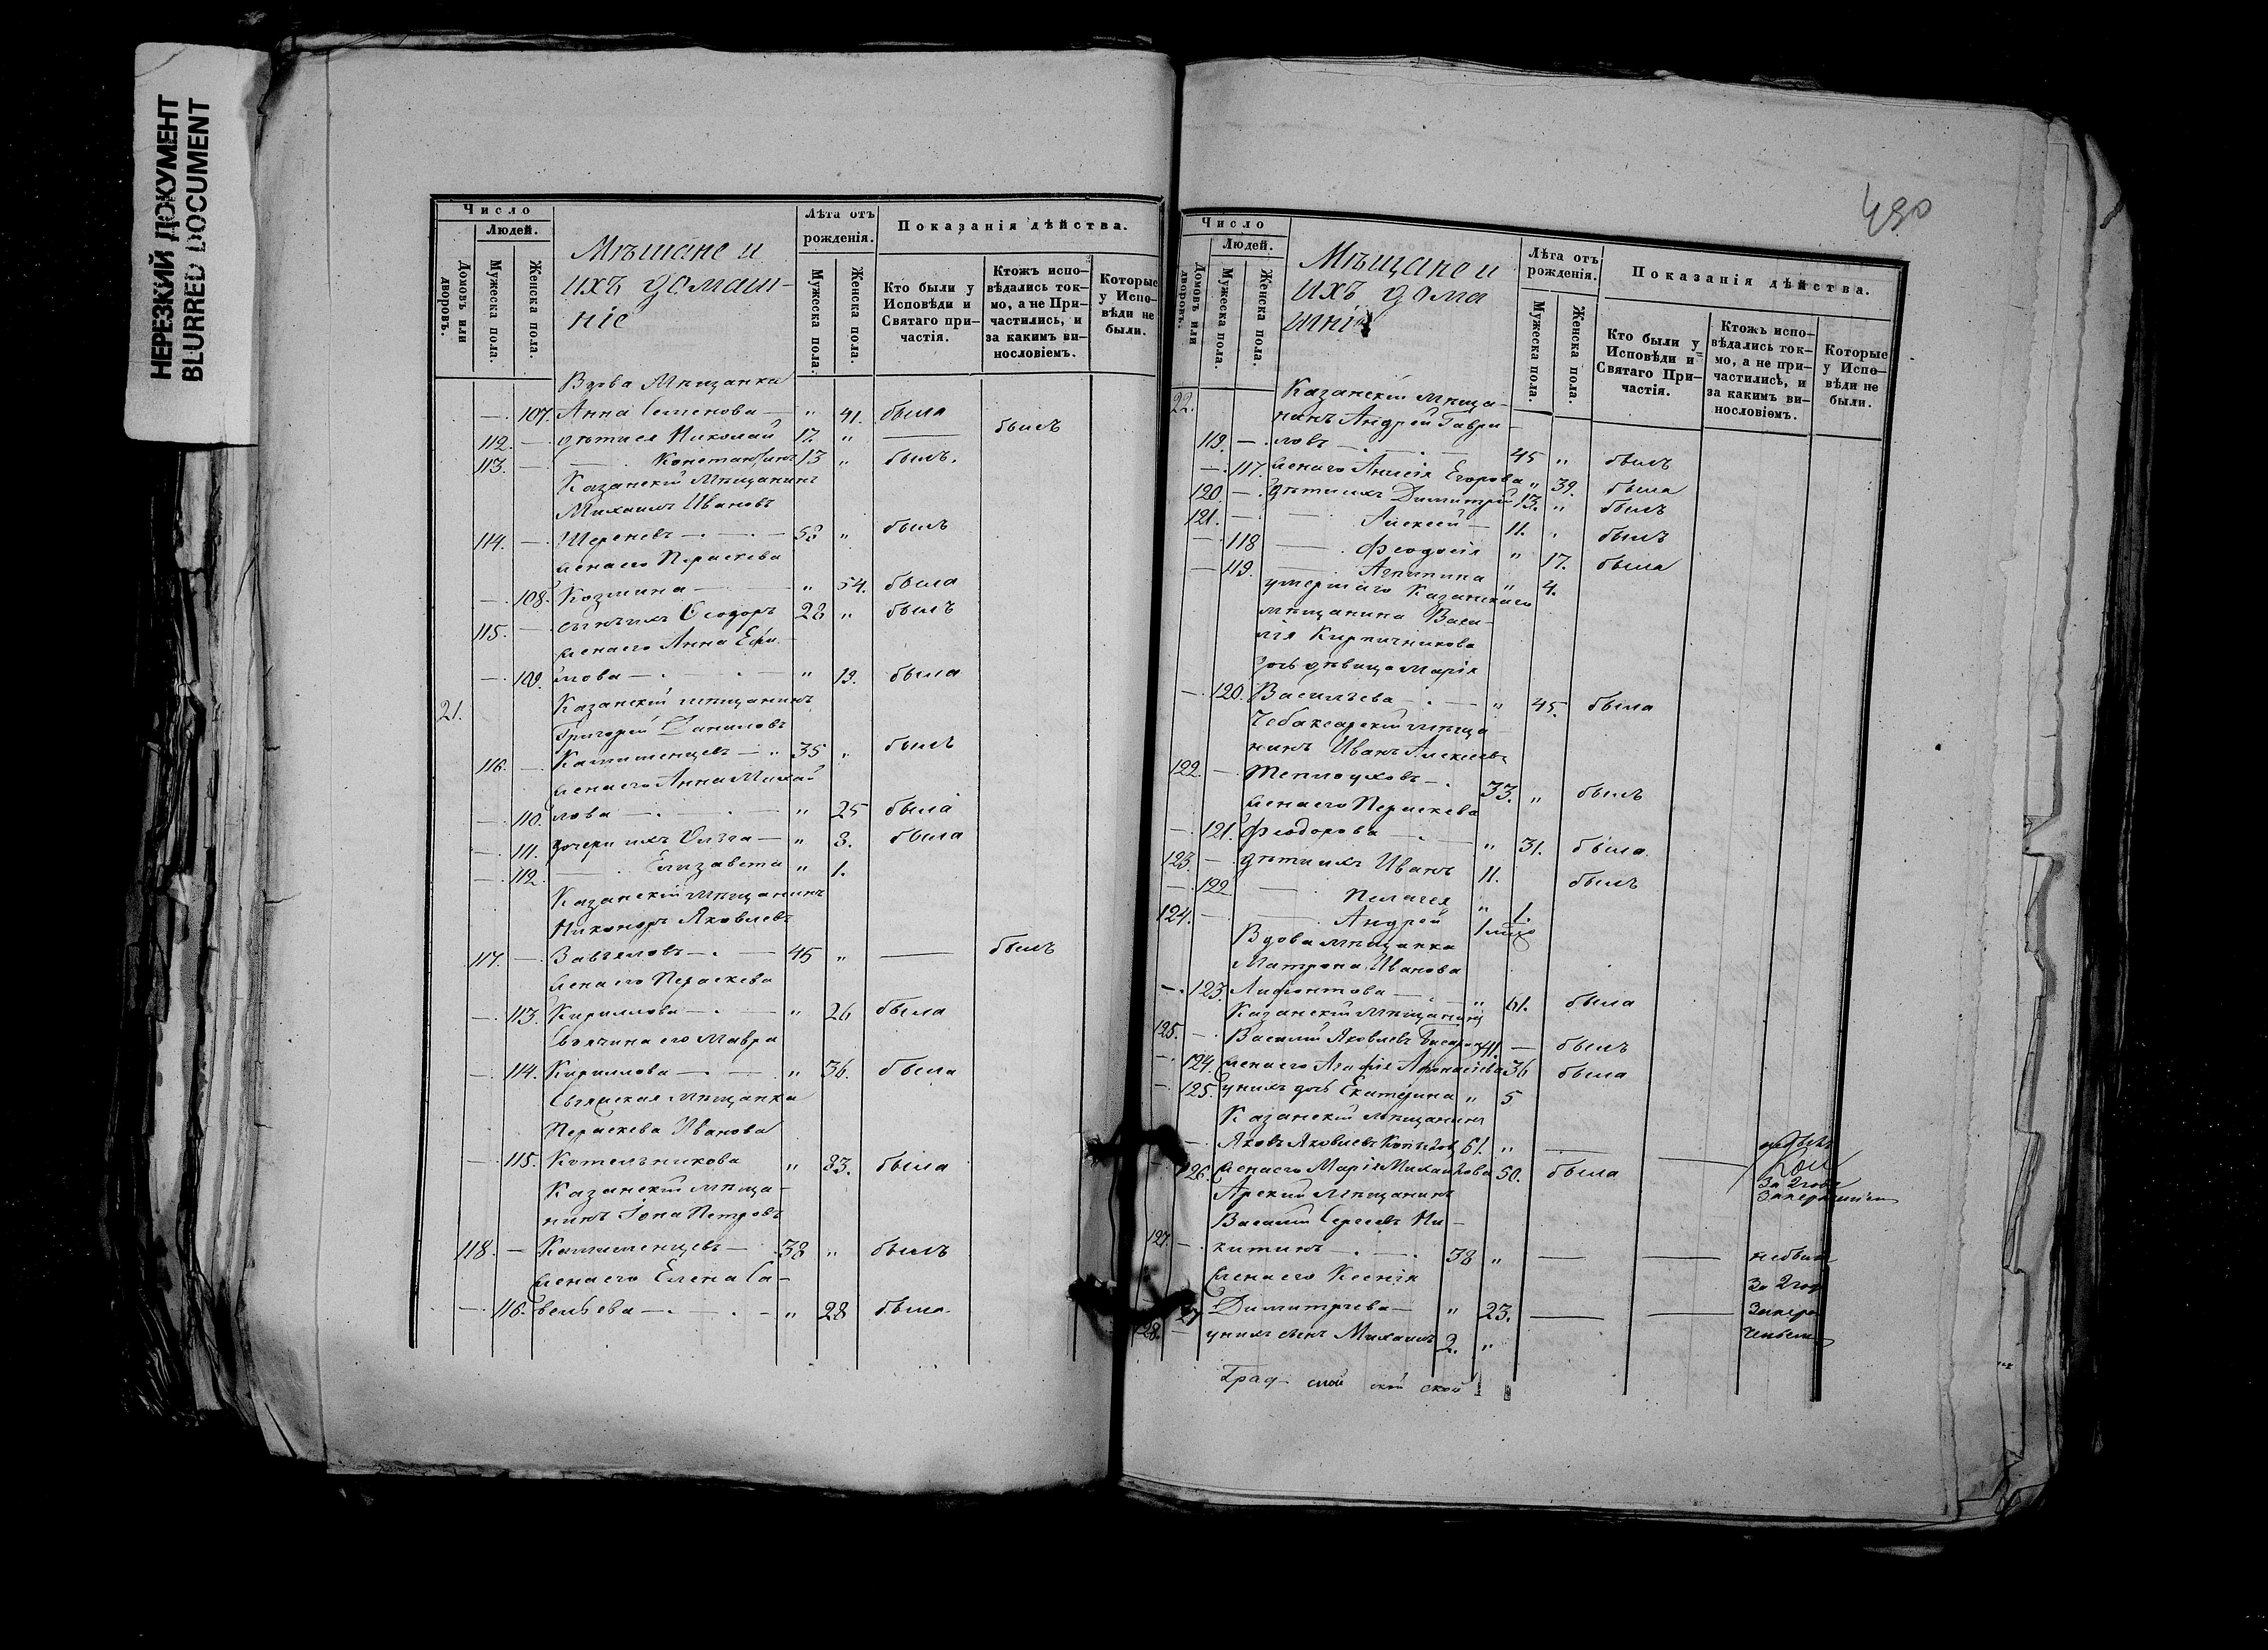 НЕРЕЗКИЙ ДОКУМЕНТ
BLURRED DOCUMENT
Число
Людей.
Домовъ или дворовъ.
Мужеска пола.
Женска пола.
Мѣщане и
ихъ домаш-
ніе
Лѣта отъ рожденія.
Мужеска пола.
Женска пола.
Показанія дѣйства.
Кто были у Исповѣди и Святаго при-частія.
Ктожъ испо-вѣдались ток-мо, а не При-частились, и за какимъ ви-нословіемъ.
Которые у Испо-вѣди не были.
Вдова Мѣщанка
— 107. Анна Семенова — " 41. была
112. — дѣти ея Николай 17. " — былъ
113. — — Константинъ 13 " былъ.
Казанскій Мѣщанинъ
Михаилъ Ивановъ
114. — " былъ
жена его Параскева
— 108. Козмина — " 54. была
115. — сынъ ихъ Ѳеодоръ 28 " былъ
жена его Анна Ефи-
— 109. мова — " 19. была
21. Казанскій мѣщанинъ
Григорій Даниловъ
116. — Камашенцевъ — 35 " былъ
жена его Анна Михай
— 110. лова — " 25 была
— 111. дочери ихъ — " 3. была
— 112 — Елизавета " 1.
Казанскій мѣщанинъ
Никоноръ Яковлевъ
117. — Завьяловъ — 45 " — былъ
жена его Параскева
— 113. Кириллова — " 26 была
его Мавра
— 114. Кириллова — " 36. была
мѣщанка
Параскева Иванова
— 115. Котельникова " 83. была
Казанскій мѣща-
нинъ Іона Петровъ
118. — Камашенцевъ — 38 " былъ
жена его Елена Са-
— 116. вельева — " 28 была.
490
Число
Людей.
Домовъ или дворовъ.
Мужеска пола.
Женска пола.
Мѣщане и
ихъ дома
шнія
Лѣта отъ рожденія.
Мужеска пола.
Женска пола.
Показанія дѣйства.
Кто были у Исповѣди и Святаго При-частія.
Ктожъ испо-вѣдались ток-мо, а не при-частились, и за какимъ ви-нословіемъ.
Которые у Испо-вѣди не были.
22. Казанскій мѣща-
нинъ Андрей Гаври-
119. — ловъ — 45 " былъ
— 117. жена его Анисія Егорова " 39. была
120. — дѣти ихъ Димитрій 13. " былъ
121. — — Алексѣй — 11. " былъ
— 118 — Феодосія " 17. была
— 119. — Агрипина " 4.
умершаго Казанскаго
мѣщанина Васи-
лія Кирпичникова
дочь дѣвица Марія
— 120. Васильева — " 45. была
Чебоксарскій мѣща
нинъ Иванъ Алексѣевъ
122. — Теплоуховъ — 33. " былъ
жена его Параскева
— 121. Феодорова — " 31. была
123. — дѣти ихъ Иванъ 11. былъ
— 122 — Пелагея " 1.
124. — — Андрей
Вдова мѣщанка
Матрона Иванова
— 123. — " 61. была
Казанскій мѣщанинъ
125. — Василій Яковлевъ 41. — былъ
— 124. жена его Агафія Афонасіева 36 была
— 125. у нихъ дочь Екатерина " 5
Казанскій мѣщанинъ
— Яковъ Яковлевъ 61. " — небылъ
— 126. жена его Марія Михайлова 50. была
за 2 года
Арскій мѣщанинъ
Василій Сергѣевъ Ни-
127. — китинъ — 38 " — — небылъ
жена его Ксенія
за 2 год
27 Димитріева — " 23. — —
128. — у нихъ сынъ Михаилъ 2. "
Град